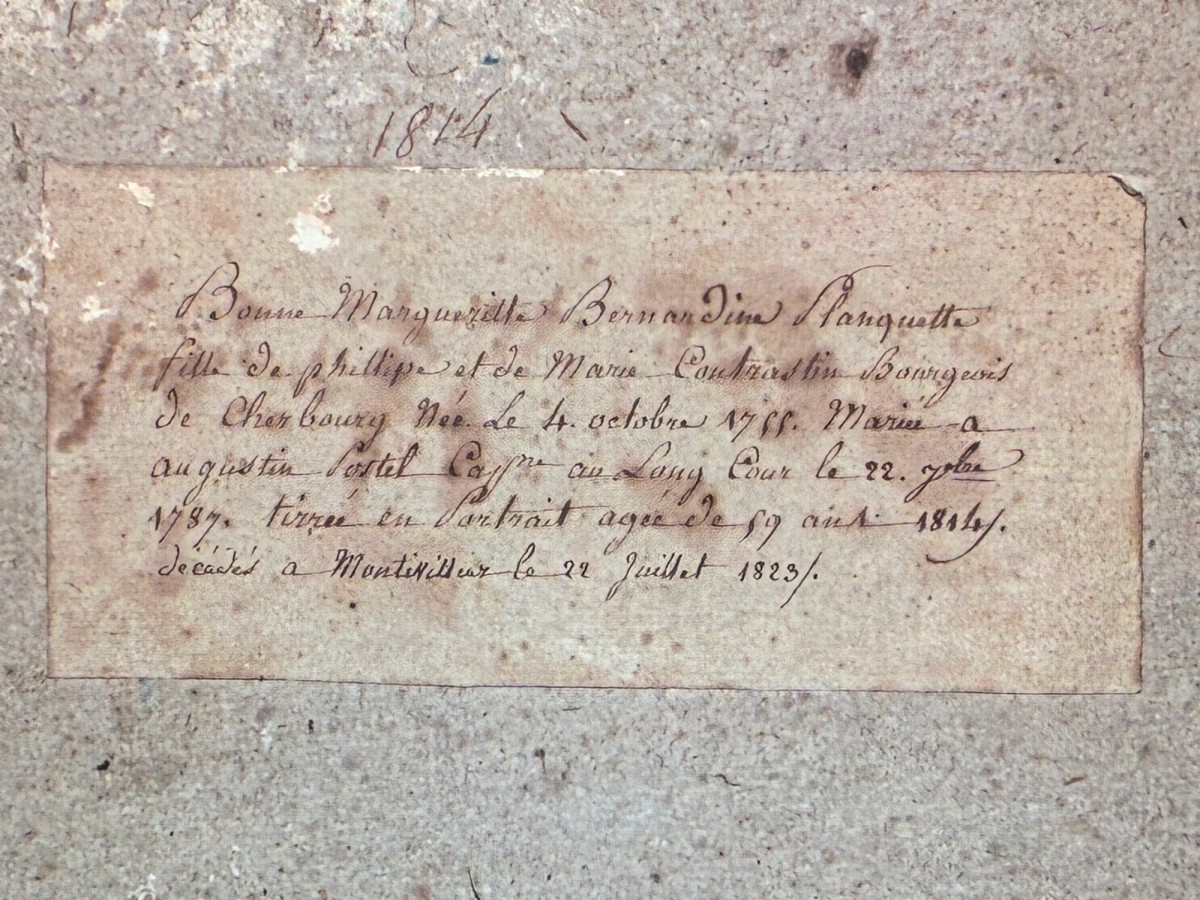 1814
Bonne Margueritte Bernardine Planquette
fille de phillipe et de Marie Contrastin Bourgeois
de Cherbourg Née Le 4. octobre 1755. Mariée a
augustin Postel Capne au Long Cour le 22. 7bre
1787. tirrée en Portrait agée de 59 ans 1814/.
décédés a Montivilliers le 22 Juillet 1823/.